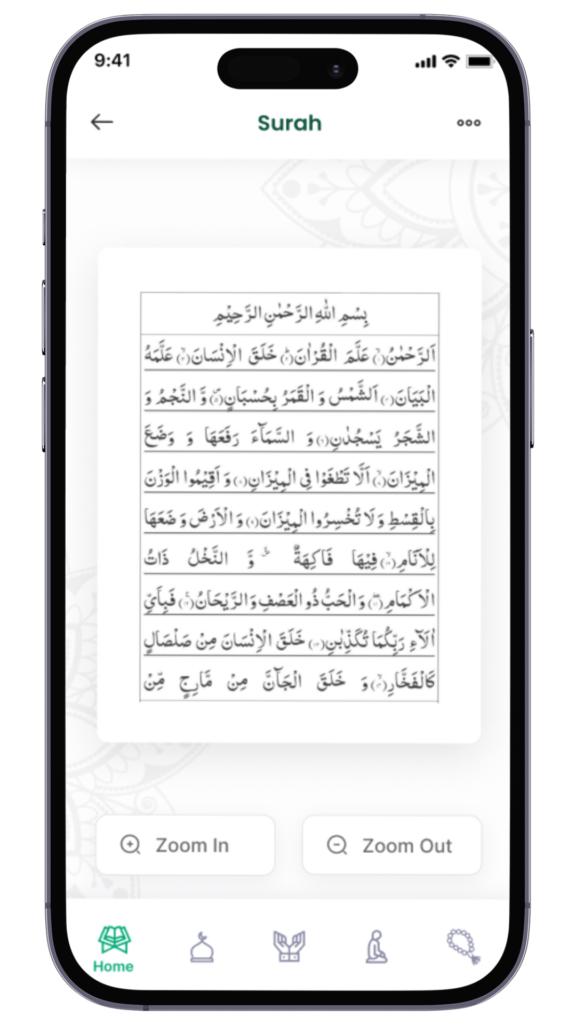 9:41
Surah
بِسْمِ اللّٰهِ الرَّحْمٰنِ الرَّحِيْمِ
اَلرَّحْمٰنُ(۱) عَلَّمَ الْقُرْاٰنَ(۲) خَلَقَ الْاِنْسَانَ(۳) عَلَّمَهُ
الْبَيَانَ(۴) اَلشَّمْسُ وَ الْقَمَرُ بِحُسْبَانٍ(۵) وَّ النَّجْمُ وَ
الشَّجَرُ يَسْجُدٰنِ(۶) وَ السَّمَآءَ رَفَعَهَا وَ وَضَعَ
الْمِيْزَانَ(۷) اَلَّا تَطْغَوْا فِی الْمِيْزَانِ(۸) وَ اَقِيْمُوا الْوَزْنَ
بِالْقِسْطِ وَ لَا تُخْسِرُوا الْمِيْزَانَ(۹) وَ الْاَرْضَ وَ ضَعَهَا
لِلْاَنَامِ(۱۰) فِيْهَا فَاكِهَةٌ ﳜ وَّ النَّخْلُ ذَاتُ
الْاَكْمَامِ(۱۱) وَ الْحَبُّ ذُو الْعَصْفِ وَ الرَّيْحَانُ(۱۲) فَبِاَیِّ
اٰلَآءِ رَبِّكُمَا تُكَذِّبٰنِ(۱۳) خَلَقَ الْاِنْسَانَ مِنْ صَلْصَالٍ
كَالْفَخَّارِ(۱۴) وَ خَلَقَ الْجَآنَّ مِنْ مَّارِجٍ مِّنْ
Zoom In
Zoom Out
Home